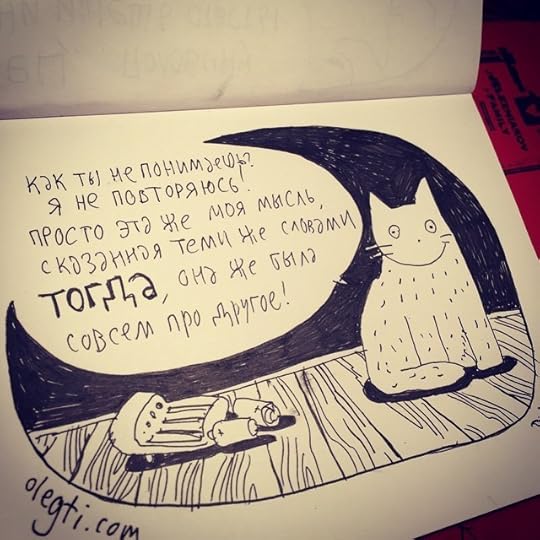 как ты не понимаешь?
я не повторяюсь!
просто эта же моя мысль,
сказанная теми же словами
тогда, она же была
совсем про другое!
olegti.com
FAMILY